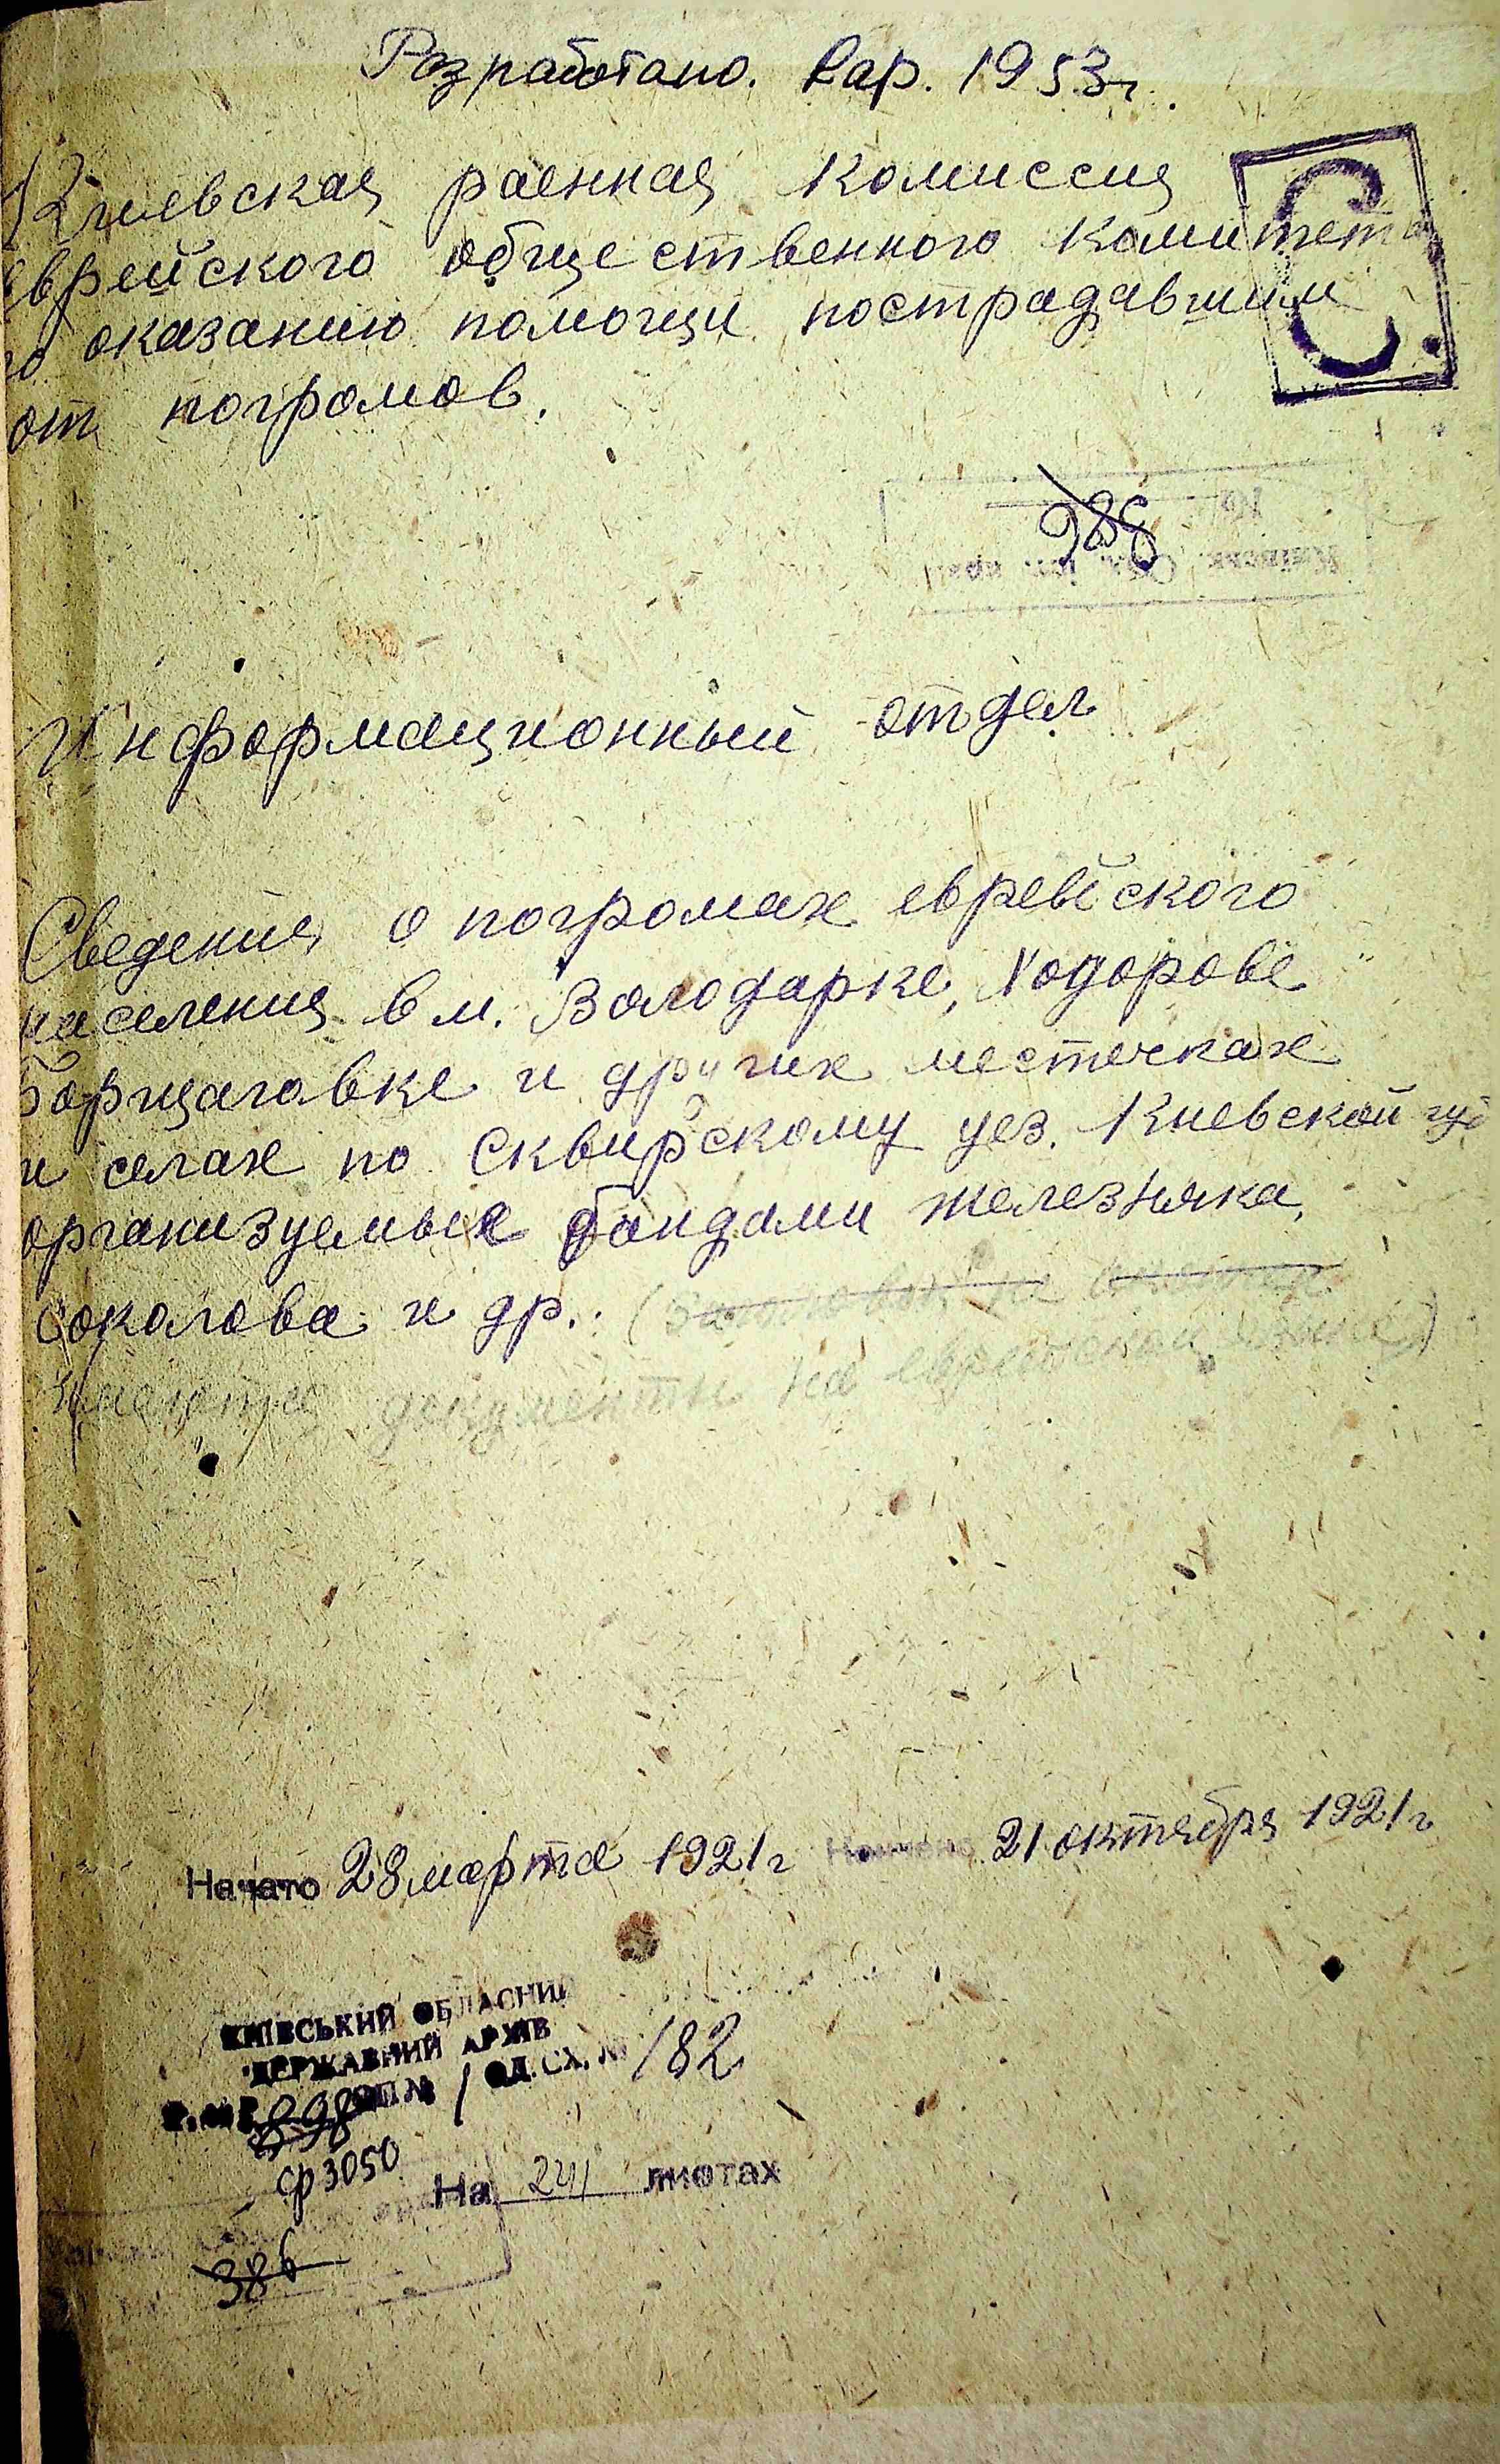 Разработано. Вар. 1953г.
Киевская раенная Комиссия
Еврейского общественного Комитета
по оказанию помощи пострадавшим
от погромов.
С
988
Информационный отдел
Сведения о погромах еврейского
населения в м. Володарке, Ходорове
Борщаговке и других местечках
и селах по Сквирскому уез. Киевской губ
организуемые бандами Железняка,
Соколова и др. (
Имеются документы на еврейском языке)
Начато 28 марта 1921г Кончено 21 октября 1921г
КИЇВСЬКИЙ ОБЛАСНИЙ
ДЕРЖАВНИЙ АРХІВ
ОП. № 1 ОД. СХ. № 182
фр 3050
На 241 листах
386